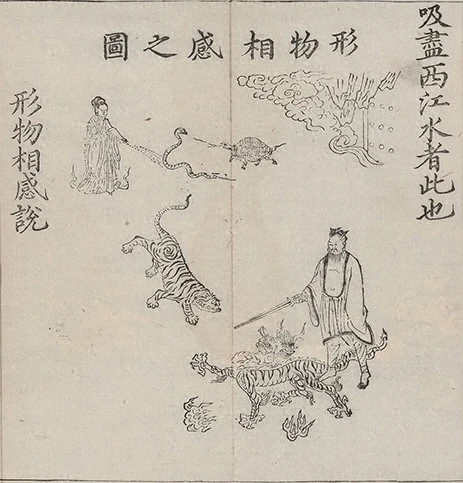 吸盡西江水者此也
形物相感之圖
形物相感說